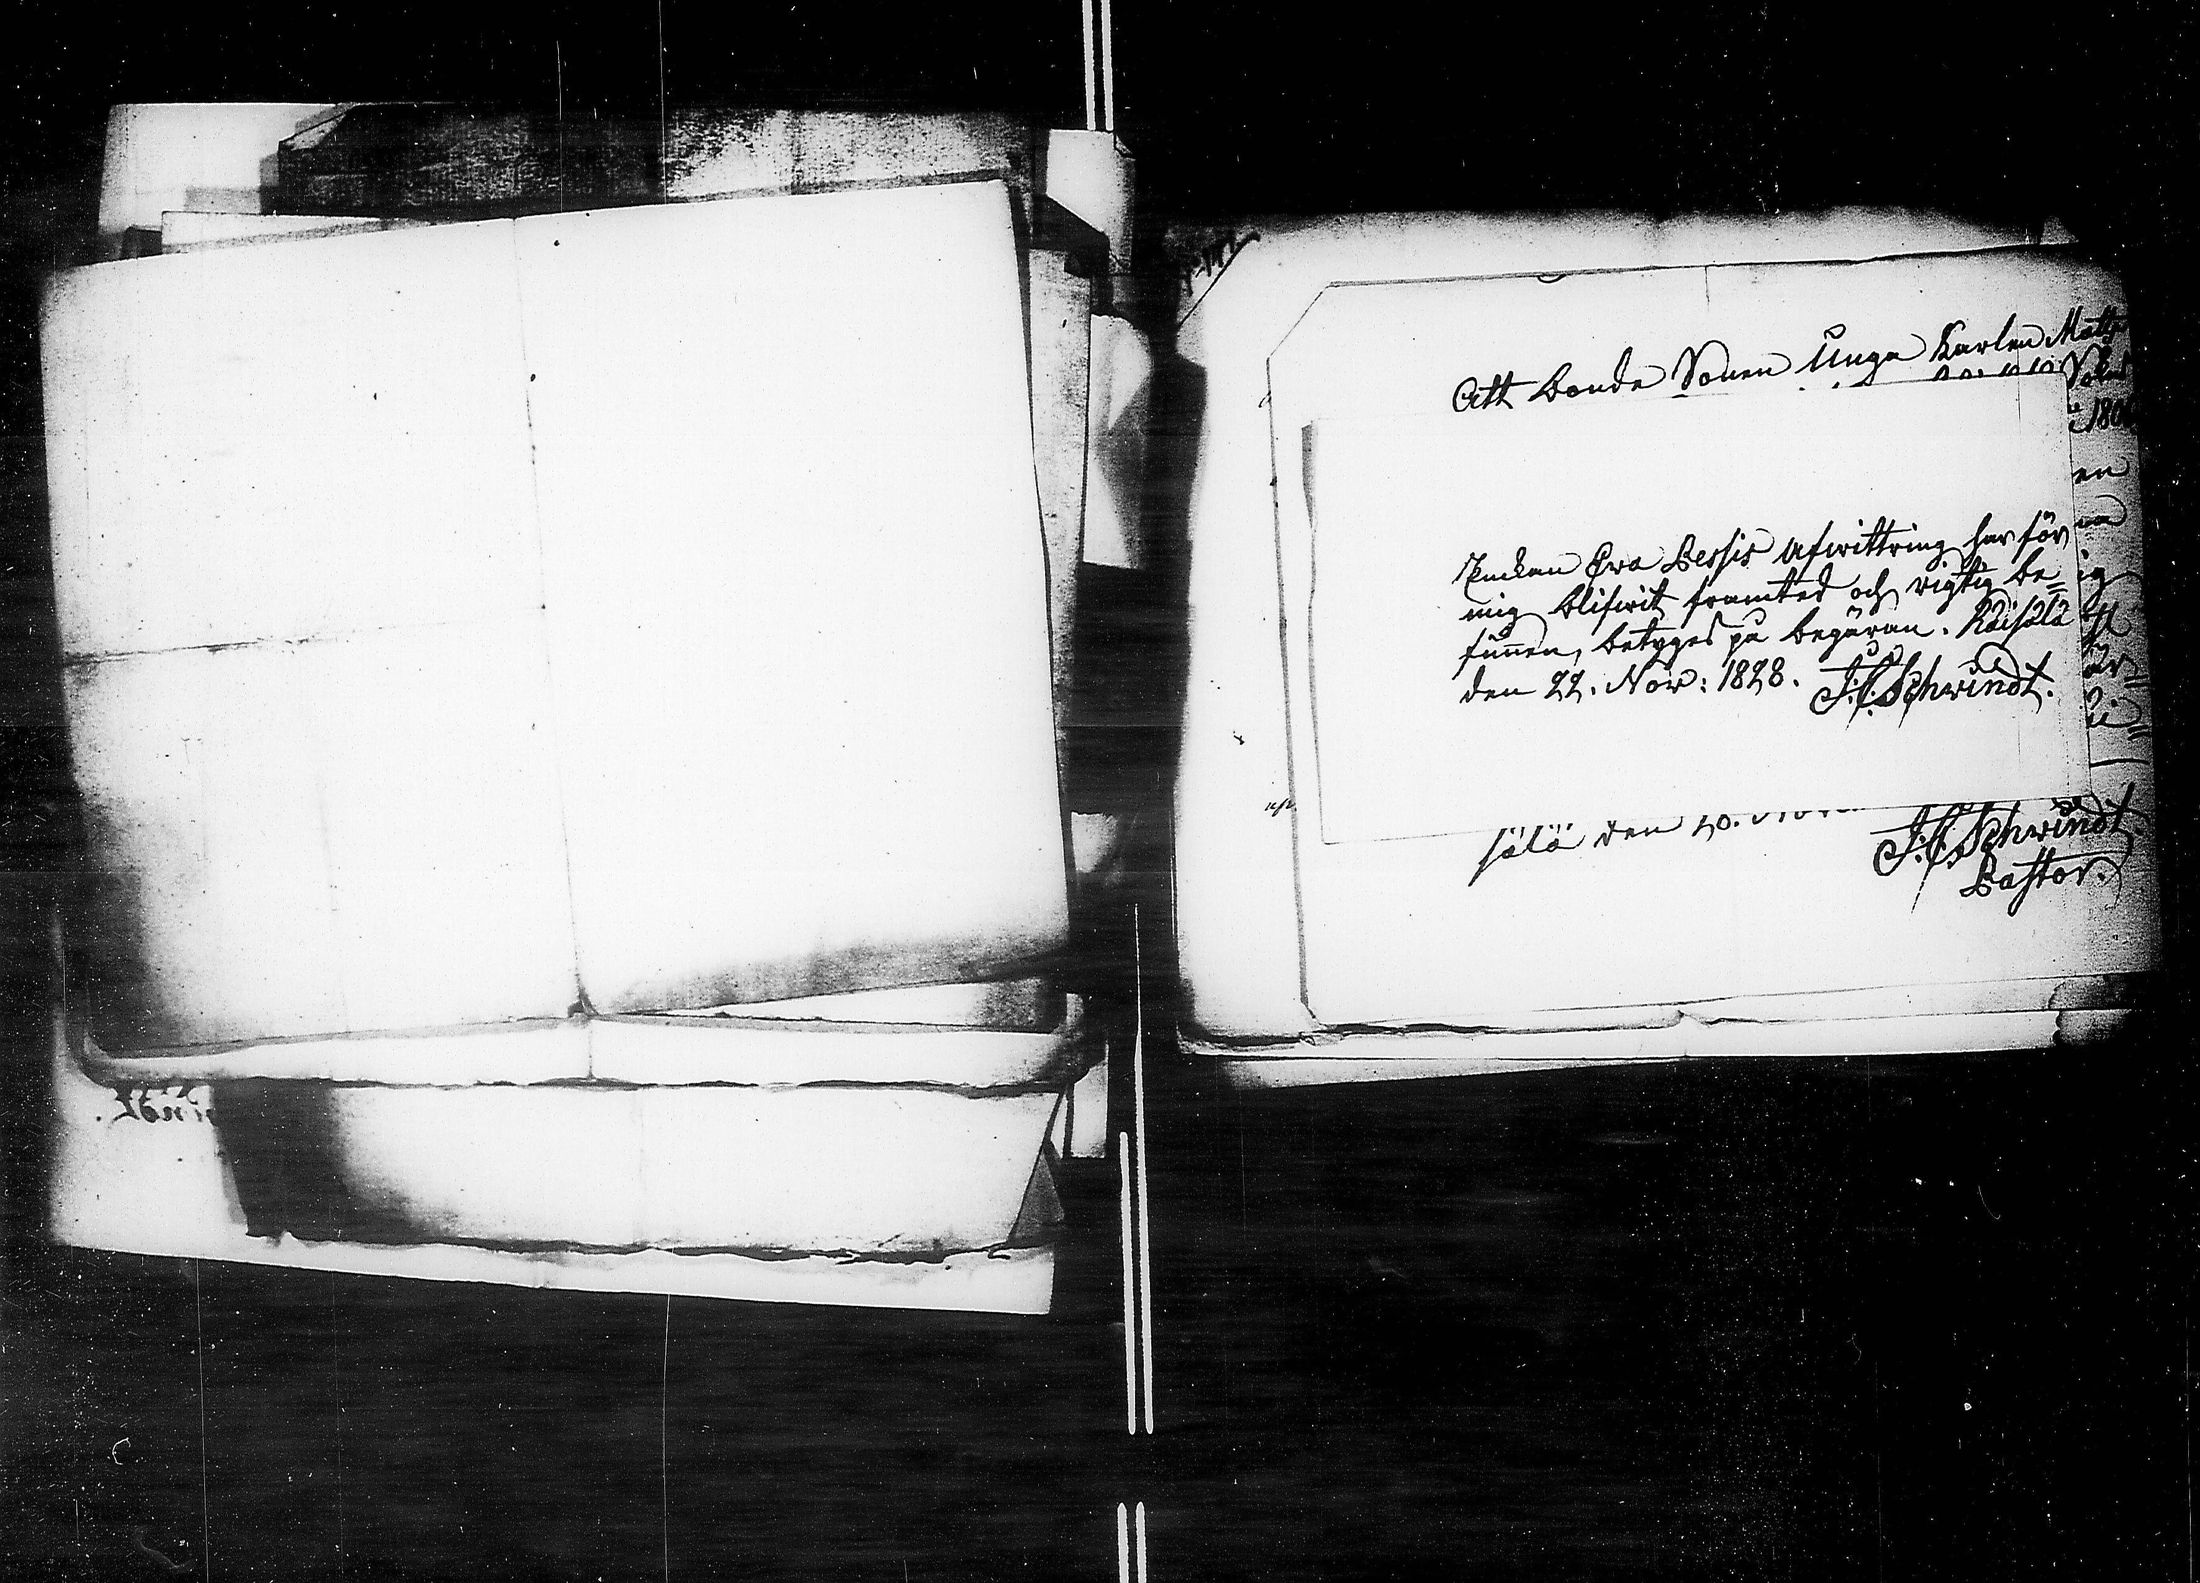 Att Bonde Sonen Unga Karlen Matts
1806
en
na
Enckan Ewa Bessis Afwittring har för
mig blifwit framted och rigtig be=
ig
funnen, betyges på begäran. Räisälä
den 22. Nov: 1828. J:C:Schwindt.
är
sälä den 20. Nov
J:C:Schwindt.
Pastor.